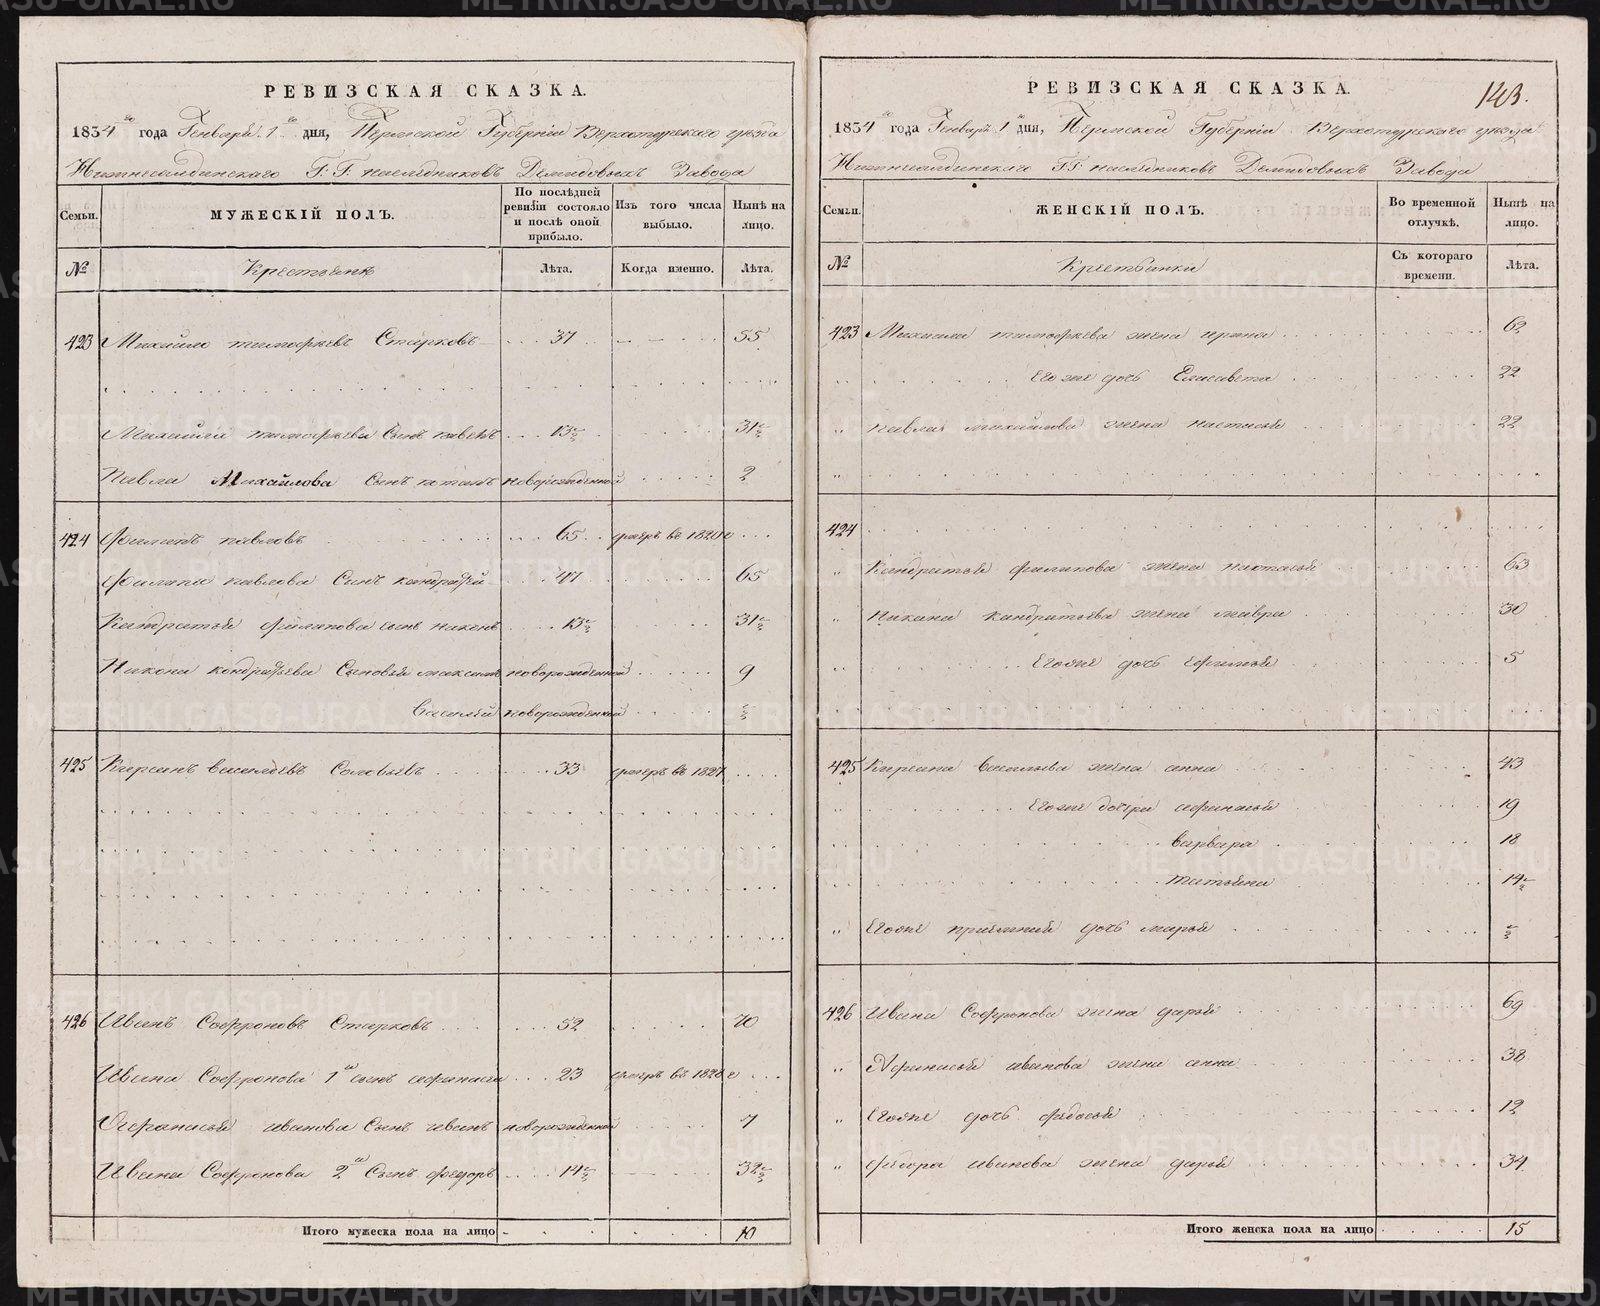 РЕВИЗСКАЯ СКАЗКА.
1834го года Генваря 1го дня, Пермской Губернiи Верхотурскаго уезда
Нижнесалдинскаго Г: Г: наследниковъ Демидовыхъ Завода
Семьи.
МУЖЕСКIЙ ПОЛЪ.
По послѣдней ревизiи состояло и послѣ оной прибыло.
Изъ того числа выбыло.
Нынѣ на лицо.
№
Крестьяне
Лѣта.
Когда именно.
Лѣта.
423 Михайла тимофеевъ Старковъ 37 55
Михайла тимофеева Сынъ павелъ 13½ 31½
Павла Михайлова Сынъ потапъ новорожденной 2
424 Филипъ павловъ 65 умеръ въ 1820
Филипа павлова Сынъ кондратей 47 65
Кондратья Филипова сынъ никонъ 13½ 31½
Никона кондратьева Сыновья максимъ новорожденной 9
Василей новорожденной ½
425 Кирсанъ васильевъ Соловьевъ 33 умеръ въ 1827
426 Иванъ Софроновъ Старковъ 52 70
Ивана Софронова 1й сынъ афанасей 23 умеръ въ 1828
Офанасья иванова Сынъ иванъ новорожденной 7
Ивана Софронова 2й Сынъ федоръ 14½ 32½
Итого мужеска пола на лицо 10
РЕВИЗСКАЯ СКАЗКА.
143.
1834го года Генваря 1 дня, Пермской Губернiи Верхотурскаго уезда
Нижнесалдинскаго Г: Г: наследниковъ Демидовыхъ Завода
Семьи.
ЖЕНСКIЙ ПОЛЪ.
Во временной отлучкѣ.
Нынѣ на лицо.
№
Крестьянки
Съ котораго времени.
Лѣта.
423 Михаила тимофеева жена ирина 62
Его же дочь Елисавета 22
" павла михайлова жена настасья 22
"
424
" Кандратья филипова жена настасья 63
" Никона кандратьева жена мавра 30
" Егоже дочь Ефимья 5
425 Кирсана Васильева жена анна 43
" Егоже дочери афанасья 19
варвара 18
татьяна 14½
" Егоже приемная дочь марья ½
426 Ивана Софронова жена дарья 69
" Афанасья иванова жена анна 38
" Егоже дочь федосья 12
" Федора иванова жена дарья 34
Итого женска пола на лицо 15
METRIKI.GASO-URAL.RU